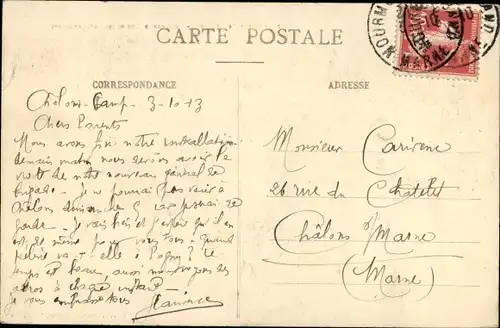 CARTE POSTALE
CORRESPONDANCE
ADRESSE
Châlons-Camp 3-10-13
Chers Parents
Nous avons fini notre installation
demain matin nous devons avoir la
visite de notre nouveau général de
brigade. Je ne pourrai pas venir à
Châlons dimanche
garde. Je vais bien et j'espère qu'il en
est de même pour vous tous. Quand
va-t-elle à Pogny? Le
temps est beau, aussi nous
à chaque instant.
Je vous embrasse tous
Maurice
Monsieur Carivenc
26 rue du Chatelet
Châlons s/ Marne
(Marne)
MOURM
MARNE